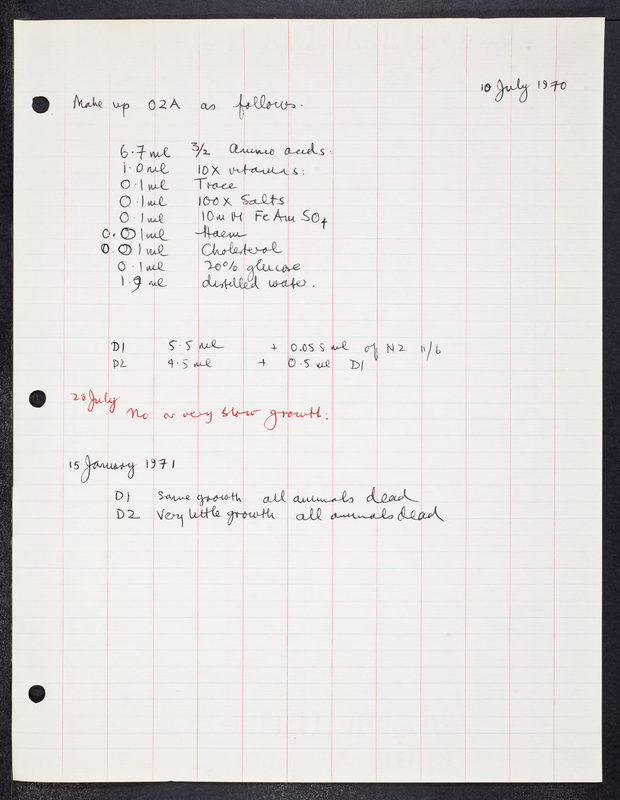 10 July 1970
Make up O2A as follows.
6.7 ml 3/2 Amino acids.
1.0 ml 10X vitamins.
0.1 ml Trace
0.1 ml 100X Salts
0.1 ml 10mM FeAmSO4
0.01 ml Haem
0.01 ml Cholesterol
0.1 ml 20% glucose
1.9 ml distilled water.
D1 5.5 ml + 0.055 ml of N2 11/6
D2 4.5 ml + 0.5 ml D1
20 July
No or very slow growth.
15 January 1971
D1 Some growth all animals dead
D2 Very little growth all animals dead